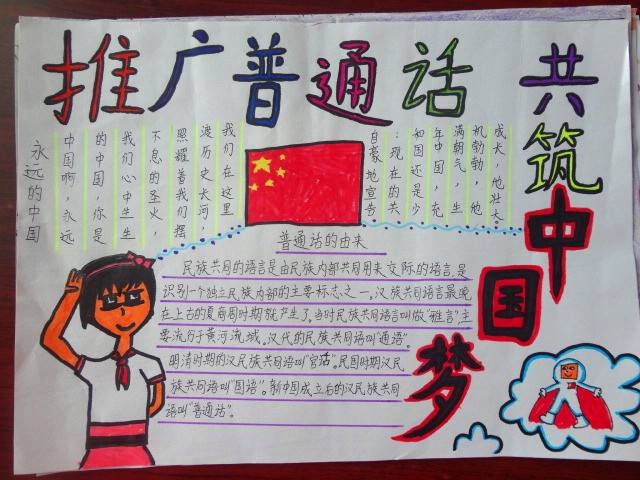 推广普通话
共筑中国梦
永远的中国
中国啊,永远
的中国,你是
我们心中生生
不息的圣火,
照耀着我们摆
渡历史长河,
我们在这里
自豪地宣告
:现在的共
和国还是少
年中国,充
满朝气,生
机勃勃,他
成长,他壮大。
普通话的由来
民族共同的语言是由民族内部共同用来交际的语言,是
识别一个独立民族内部的主要标志之一。汉族共同语言最晚
在上古的夏商周时期就产生了,当时民族共同语言叫做"雅言",主
要流行于黄河流域。汉代的民族共同语叫"通语"。
明清时期的汉民族共同语叫"官话"。民国时期汉民
族共同语叫"国语"。新中国成立后的汉民族共同
语叫"普通话"。